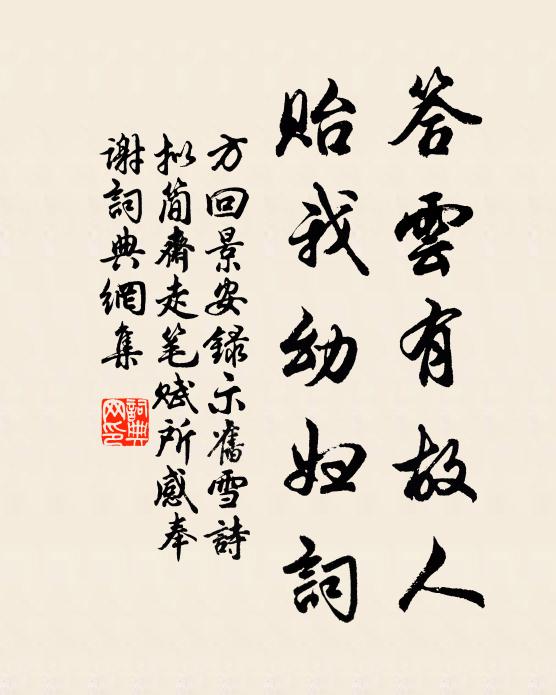 答雲有故人
貽我幼婦詞
方回景安録示舊雪詩
拟簡齋走笔赋所感奉
謝詞典網集
詞典
网印